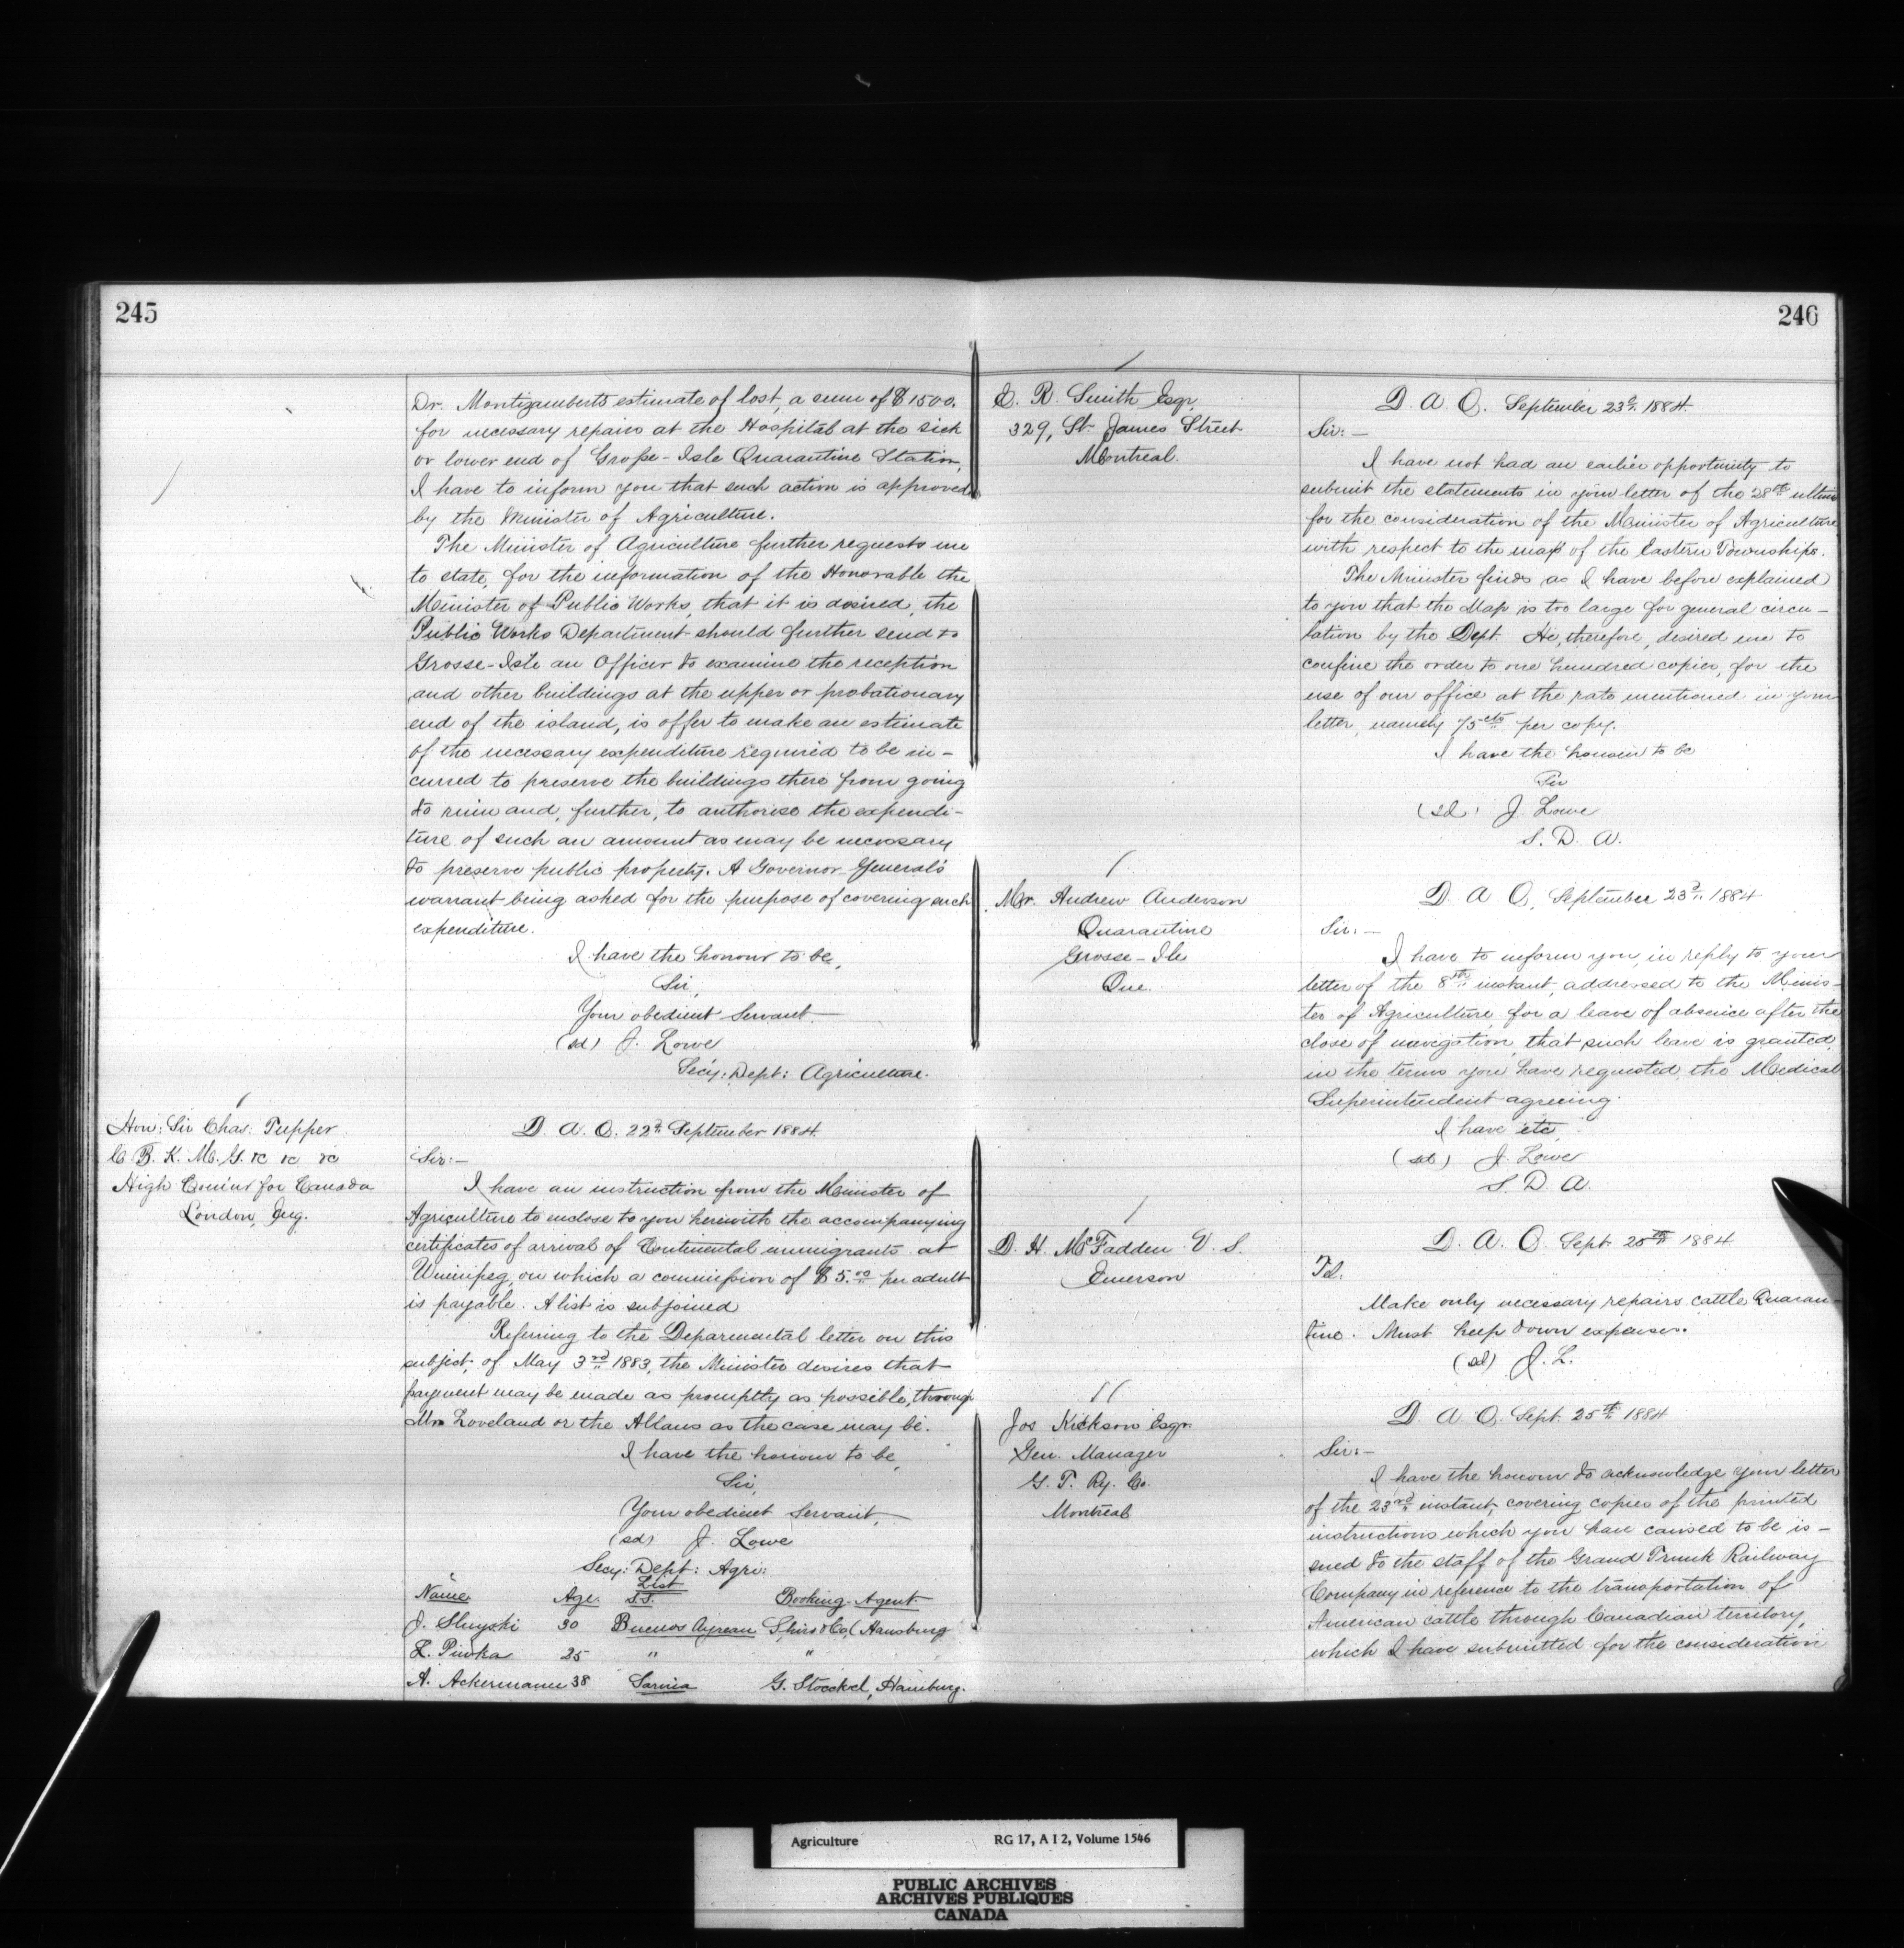 245
Dr. Montizamberts estimate of lost, a sum of $1500.
for necessary repairs at the Hospital at the sick
or lower end of Grosse-Isle Quarantine Station,
I have to inform you that such action is approved
by the Minister of Agriculture.
The Minister of Agriculture further requests me
to state, for the information of the Honorable the
Minister of Public Works, that it is desired, the
Public Works Department should further send to
Grosse-Isle an Officer to examine the reception
and other buildings at the upper or probationary
end of the island, is offer to make an estimate
of the necessary expenditure required to be in-
curred to preserve the buildings there from going
to ruin and, further, to authorise the expendi-
ture of such an amount as may be necessary
to preserve public property. A Governor General's
warrant being asked for the purpose of covering such
expenditure.
I have the honour to be,
Sir,
Your obedient Servant
(sd) J. Lowe
Secy: Dept: Agriculture.
Hon: Sir Chas: Tupper
C. B. K. M. G. &c &c &c
High Comisr for Canada
London, Eng.
D. A. O. 22d September 1884.
Sir:-
I have an instruction from the Minister of
Agriculture to enclose to you herewith the accompanying
certificates of arrival of Continental immigrants at
Winnipeg, on which a commission of $5.00 per adult
is payable. A list is subjoined
Referring to the Deparmental letter on this
subject, of May 3rd 1883, the Minister desires that
payment may be made as promptly as possible, through
Mrs Loveland or the Allans as the case may be.
I have the honour to be,
Sir,
Your obedient Servant,
(sd) J. Lowe
Secy: Dept: Agri:
List
Name Age. S.S. Booking-Agent.
J. Sluyski 30 Buenos Ayrean Spiro & Co, (Hamburg
L. Piwka 25 " "
A. Ackermann 38 Sarnia G. Stoeckel, Hamburg.
246
E. R. Smith Esqr,
329, St. James Street
Montreal.
D. A. O. September 23d 1884.
Sir:-
I have not had an earlier opportunity to
submit the statements in your letter of the 28th ultimo
for the consideration of the Minister of Agriculture
with respect to the map of the Eastern Townships.
The Minister finds as I have before explained
to you that the Map is too large for general circu-
lation by the Dept. He, therefore, desired me to
confine the order to one hundred copies, for the
use of our office at the rate mentioned in your
letter, namely 75cts per copy.
I have the honour to be
Sir
(sd) J. Lowe
S. D. A.
Mr. Andrew Anderson
Quarantine
Grosse-Ile
Que.
D. A. O. September 23d 1884
Sir:-
I have to inform you, in reply to your
letter of the 8th instant, addressed to the Minis-
ter of Agriculture, for a leave of absence after the
close of navigation, that such leave is granted
in the terms you have requested, the Medical
Superintendent agreeing.
I have etc,
(sd) J. Lowe
S. D. A.
D. H. McFadden V. S.
Emerson
D. A. O. Sept. 25th 1884
Tel:
Make only necessary repairs cattle Quaran-
tine. Must keep down expenses.
(sd) J. L.
Jos Hickson Esqr.
Gen. Manager
G. T. Ry. Co.
Montreal
D. A. O. Sept. 25th 1884
Sir:-
I have the honour to acknowledge your letter
of the 23rd instant, covering copies of the printed
instructions which you have caused to be is-
sued to the staff of the Grand Trunk Railway
Company in reference to the transportation of
American cattle through Canadian territory,
which I have submitted for the consideration
Agriculture RG 17, A I 2, Volume 1546
PUBLIC ARCHIVES
ARCHIVES PUBLIQUES
CANADA